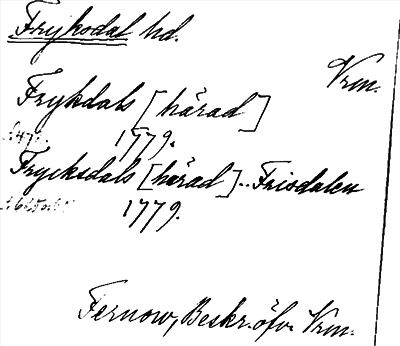 Fryksdal hd.
Vrm.
Frykdals [härad]
1779.
Frycksdals [härad].. Frisdalen
1779.
Fernow, Beskr. öfv. Vrm.